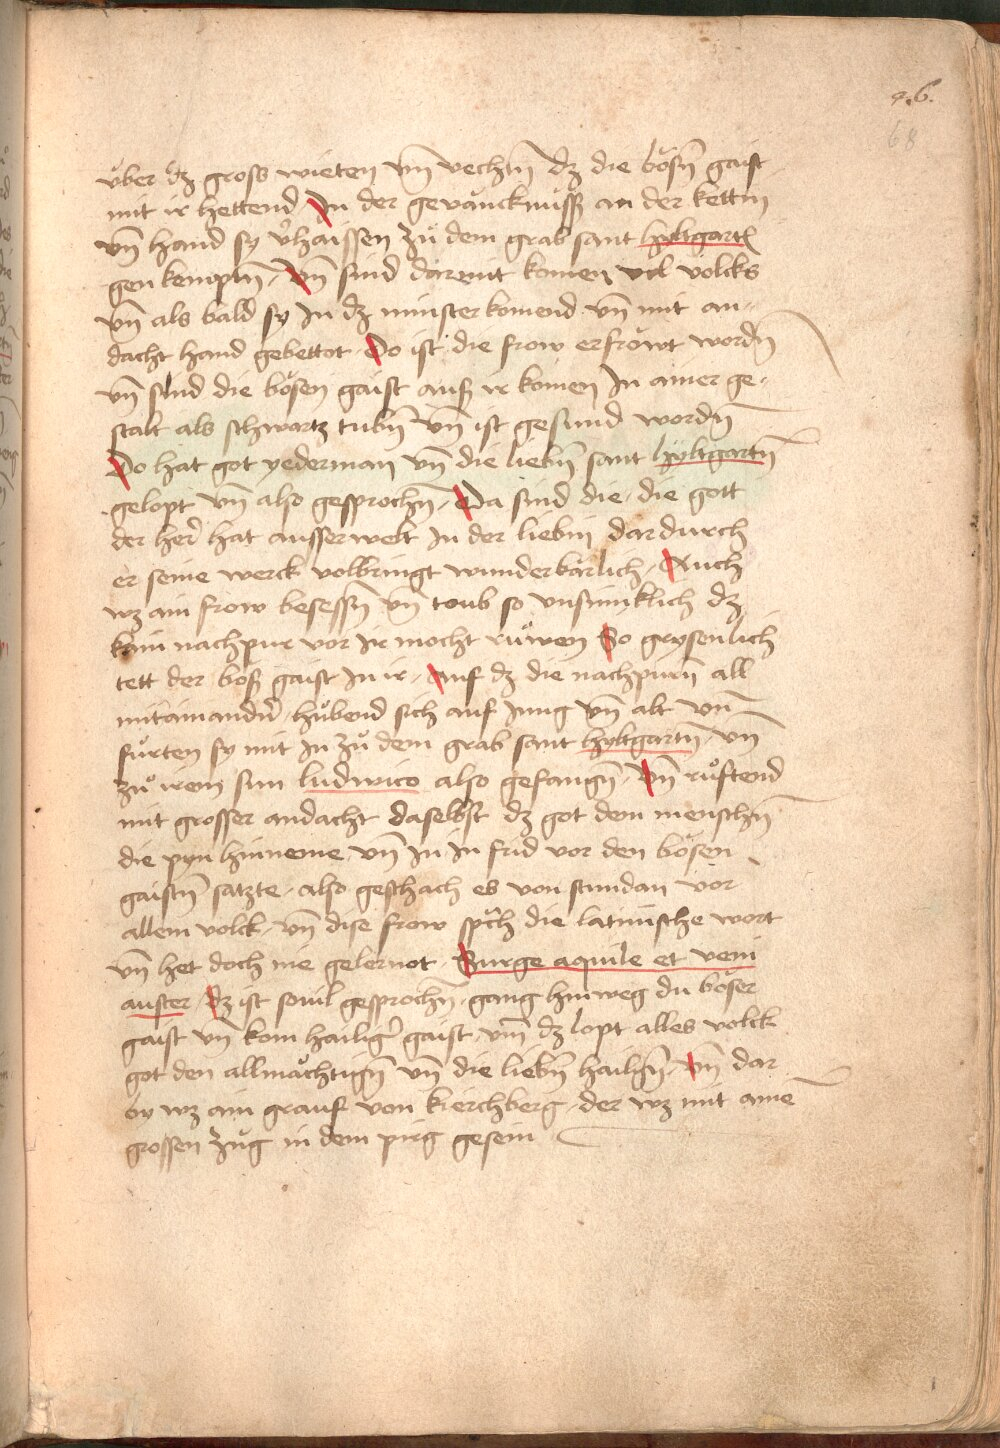 96.
68
über dz gross wieten vn̄ vechtn̄ dz die bösn̄ gaist
mit ir hettend In der geväncknüss an der kettin
vn̄ hand sy v̓haissen zů dem grab sant hyltgartn̄
gen kemptn̄ · Vn̄ sind darmit komen vil volcks
vn̄ als bald sy In dz münster komend vn̄ mit an-
dacht hand gebettot · Do ist die frow erfröwt wordn̄
vn̄ sind die bösen gaist auß ir komen In ainer ge-
stalt als schwartz tubn̄ vn̄ ist gesund wordn̄
Do hat got yederman vn̄ die liebn̄ sant hyltgartn̄
gelopt vn̄ also gesprochn̄ · Da sind die · die gott
der her̓ hat ausserwelt In der liebin dardurch
er seine werck volbringt wunderbärlich · Auch
wz ain frow besessn̄ vn̄ toub so vnsinnklich dz
kain nachpur vor Ir mocht růwen So grysenlich
tett der böß gaist In ir · Auf dz die nachpurn̄ all
mitainandr̓ · hübend sich auf Jung vn̄ alt vn̄
fůrten sy mit In zů dem grab sant hyltgartn̄ vn̄
zů irem sun ludwico also gefangn̄ · Vn̄ růftend
mit grosser andacht daselbst dz got dem menschn̄
die pyn hinneme vn̄ In In frid vor den bösen
gaistn̄ satzte · also geschach es von stundan vor
allem volck · vn̄ dise frow sprͣch die latinische wort
vn̄ het doch nie gelernot · Surge aquile et veni
auster · dz ist sovil gesprochn̄ · gang hinweg du böser
gaist vn̄ kom hailigr̓ gaist · vm̄ dz lopt alles volck
got den allmächtign̄ vn̄ die liebn̄ hailgn̄ · Vn̄ dar
by wz ain grauf von kierchberg · der wz mit aine̅
grossen zůg in dem pirg gesein